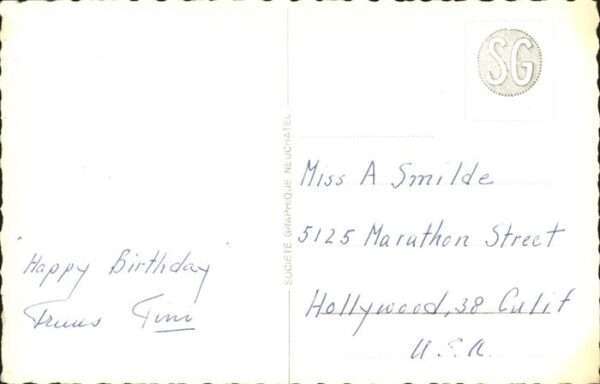 SG
SOCIÉTÉ GRAPHIQUE NEUCHATEL
"Happy Birthday"
Truus Tini
Miss A Smilde
5125 Marathon Street
Hollywood, 38 Calif
U.S.A.